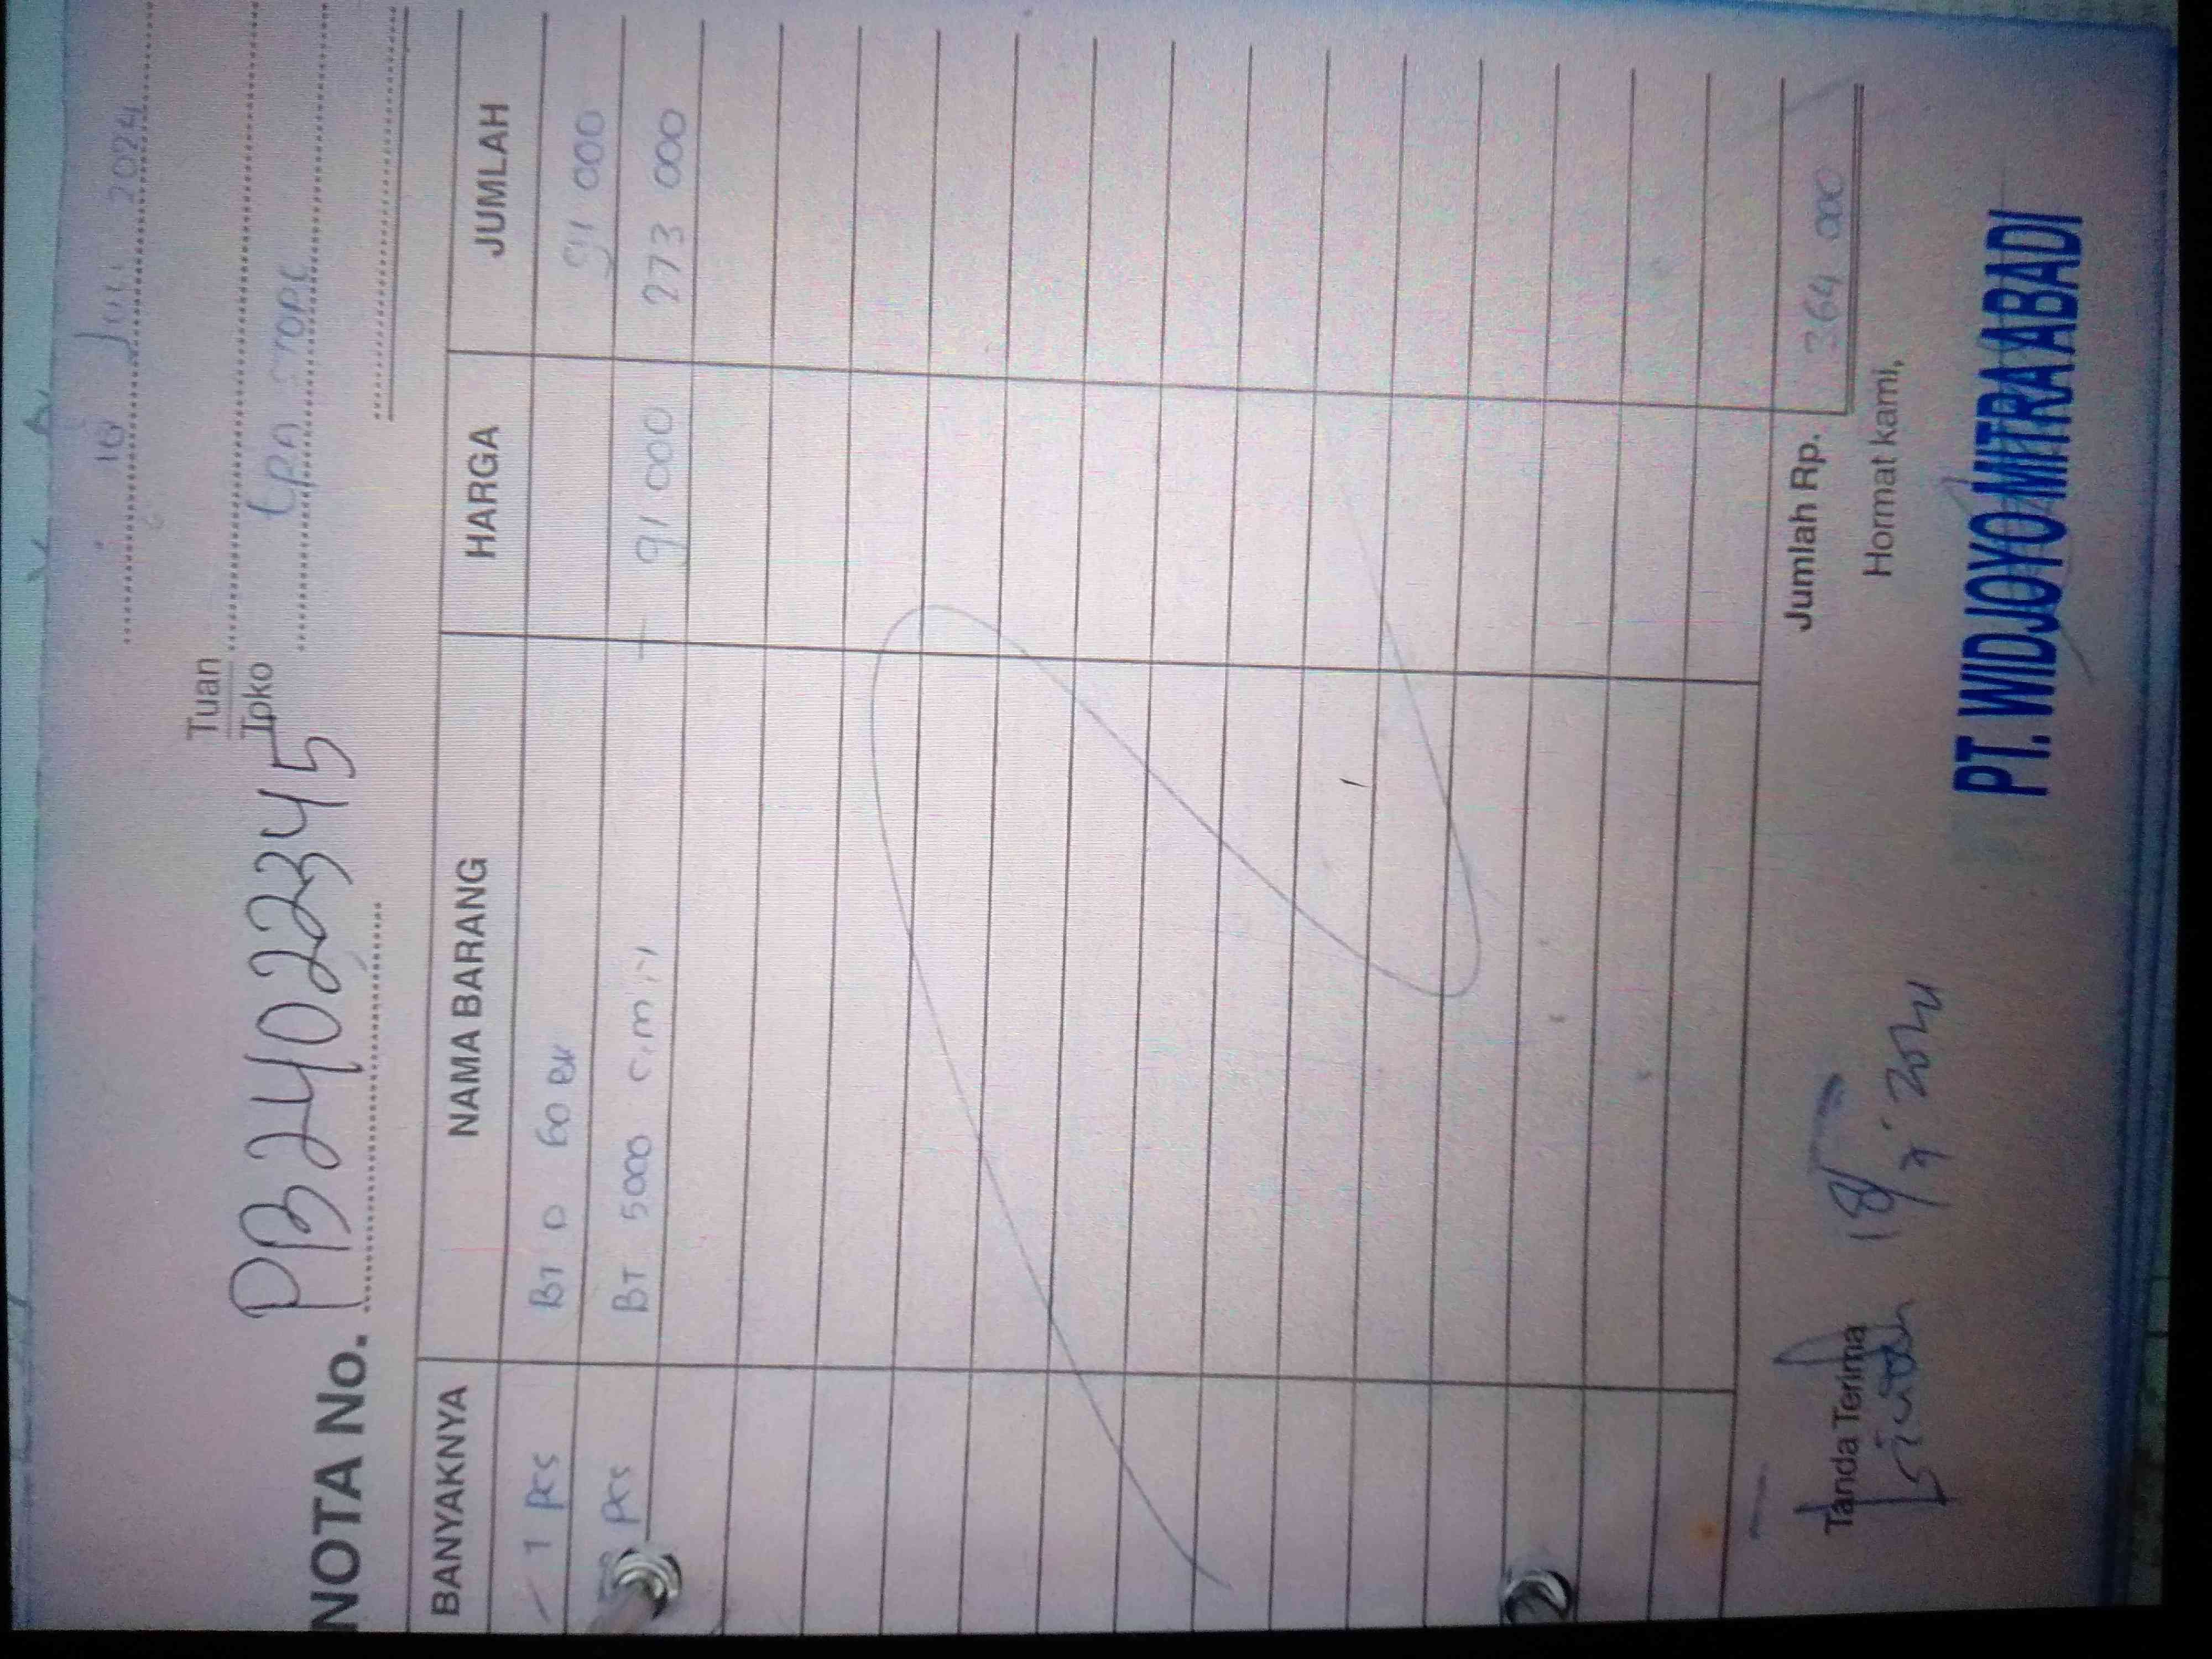 10 Juli 2024
Tuan
Toko
NOTA No. PB24022345
BANYAKNYA NAMA BARANG HARGA JUMLAH
1 pcs BT D 60 BK 91 000
pcs BT 5000 91 000 273 000
Jumlah Rp. 364 000
Tanda Terima Hormat kami,
18/7 2024
PT. WIDJOYO MITRA ABADI